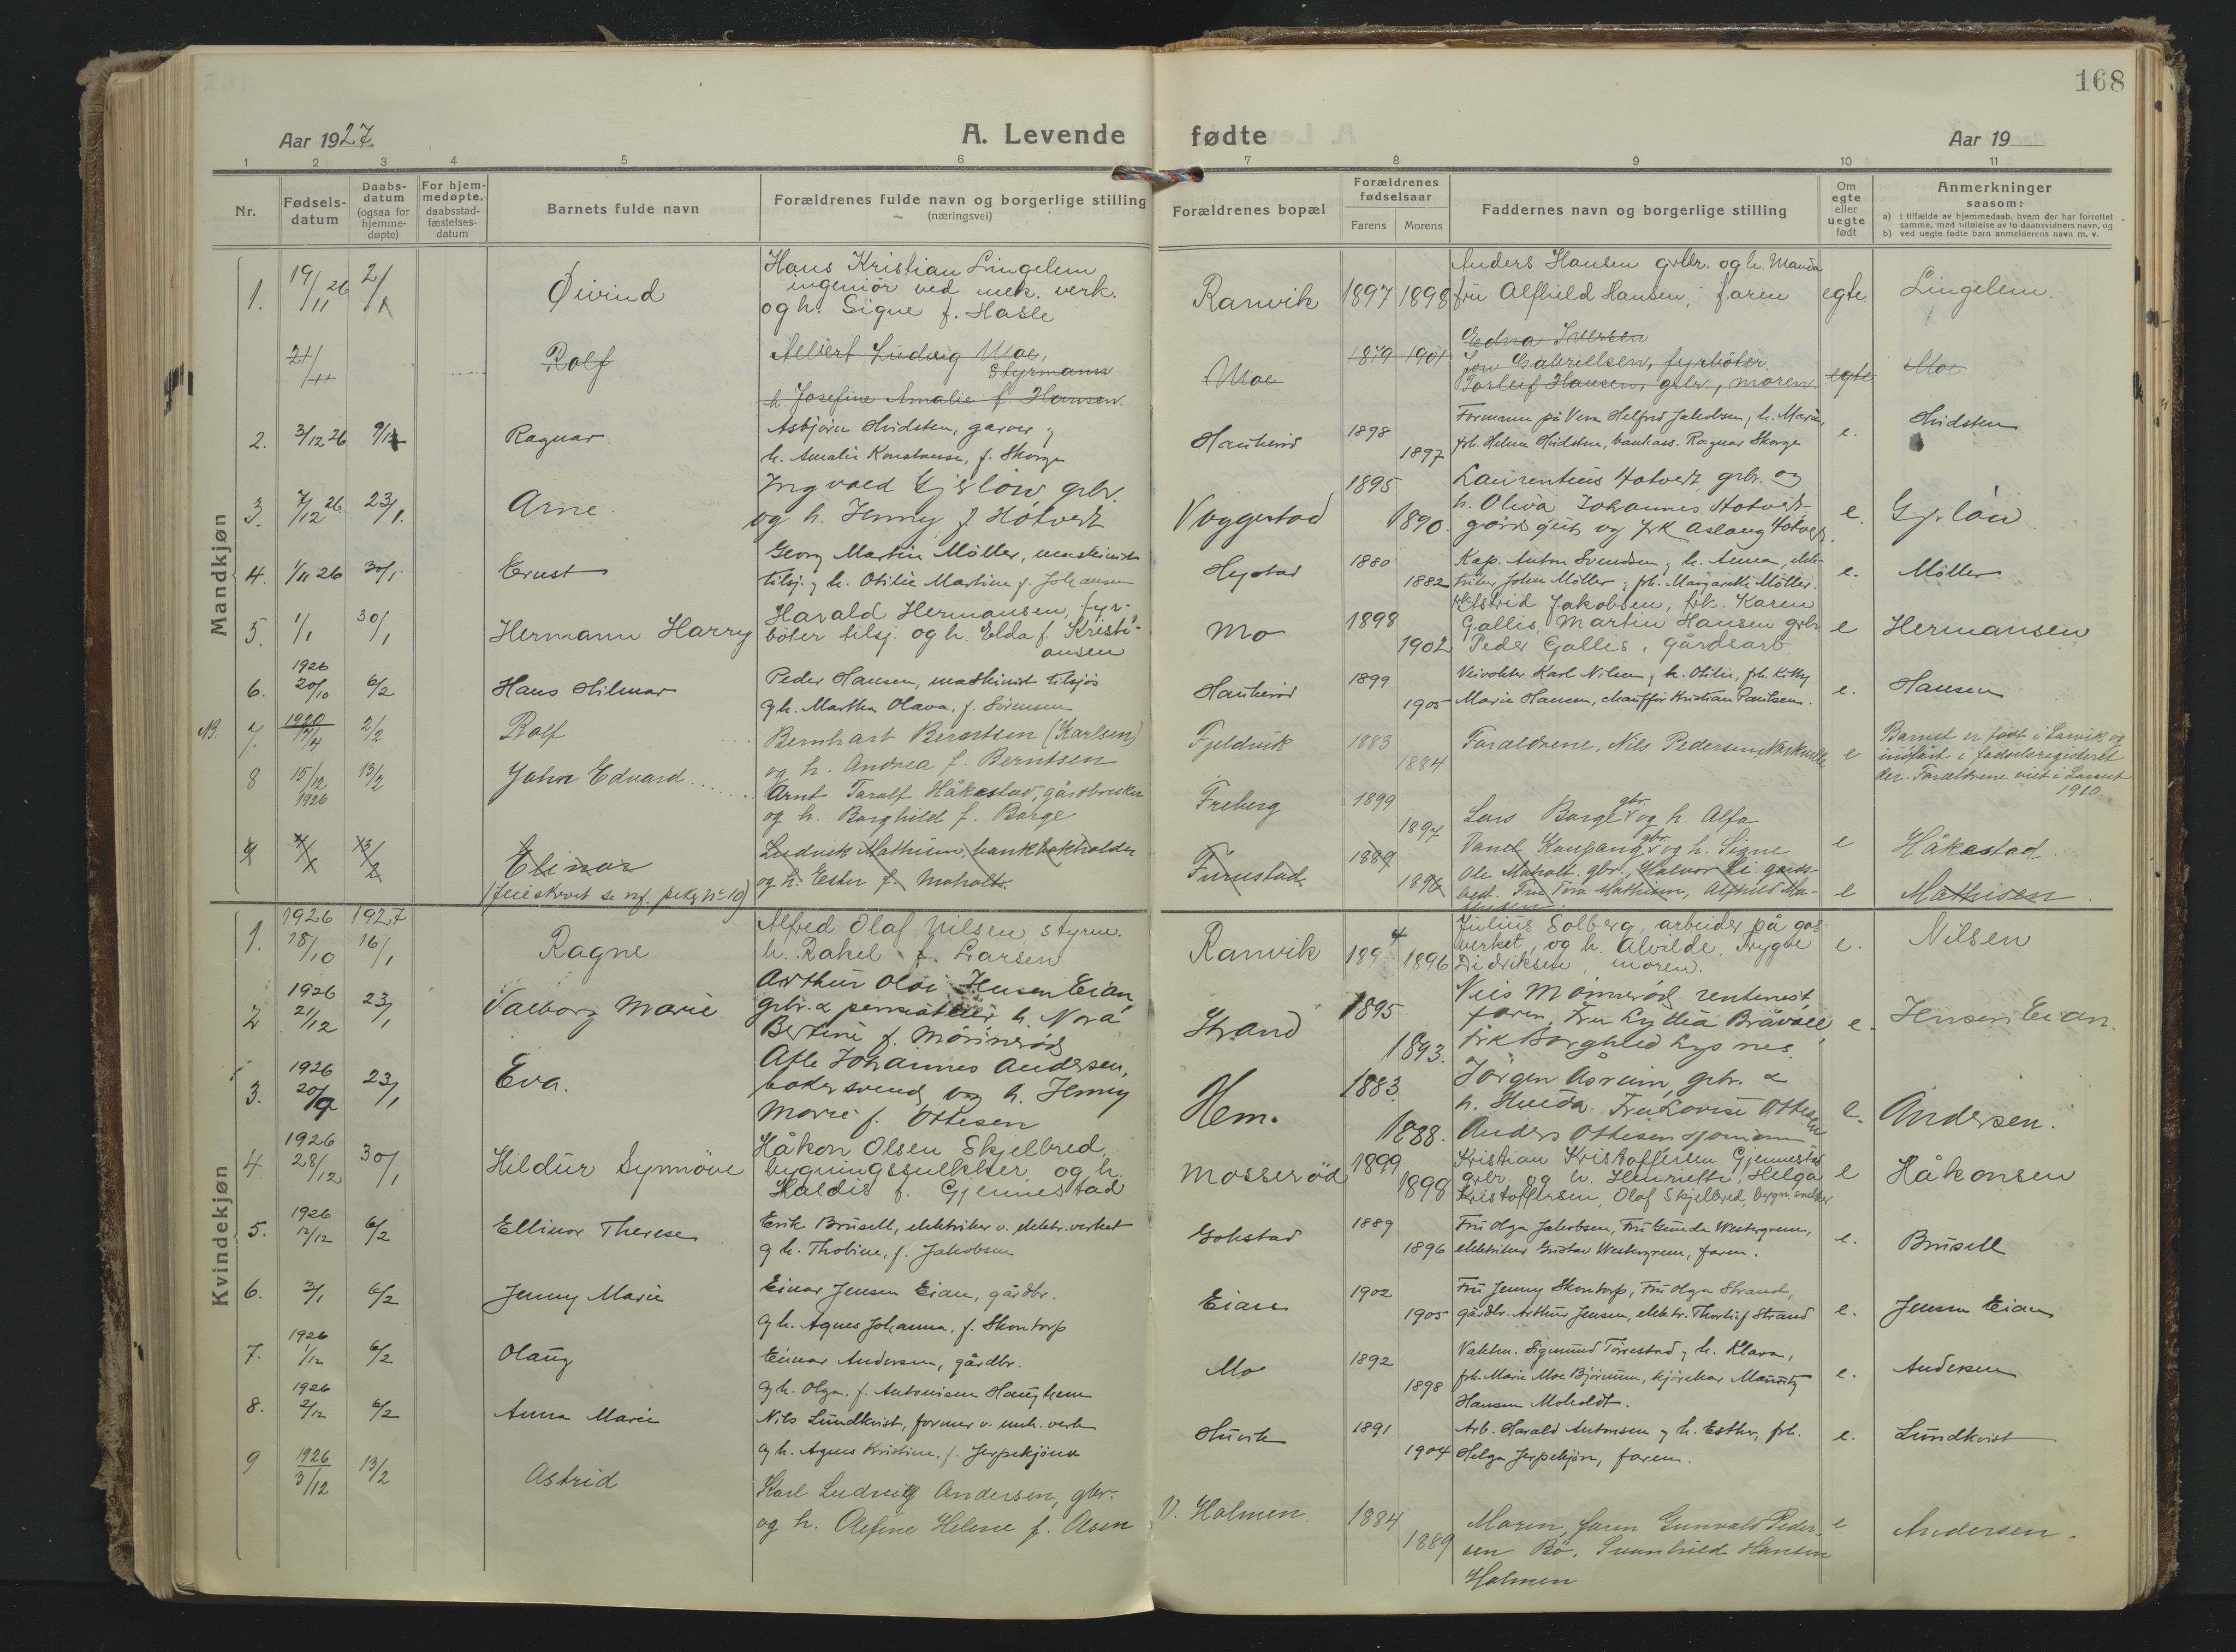 168
Aar 1927
A. Levende
fødte
Aar 19
1 2 3 4 5 6 7 8 9 10 11
Nr.
Fødsels-
datum
Daabs-
datum
(ogsaa for
hjemme-
døpte)
For hjem-
medøpte.
daabsstad-
fæstelses-
datum
Barnets fulde navn
Forældrenes fulde navn og borgerlige stilling
(næringsvei)
Forældrenes bopæl
Forældrenes
fødselsaar
Farens Morens
Faddernes navn og borgerlige stilling
Om
egte
eller
uegte
født
Anmerkninger
saasom:
a) i tilfælde av hjemmedaab, hvem der har forrettet
samme, med tilføielse av to daabsvidners navn, og
b) ved uegte fødte barn anmelderens navn m. v.
Mandkjøn
1. 19/11 26 2/1 Øivind
Hans Kristian Lingelem
ingeniør ved mek. verk.
og h. Signe f. Hasle
Ranvik 1897 1898
Anders Hansen grbr. og h. Manda
fru Alfhild Hansen, faren
egte. Lingelem.
21/11 Rolf
Albert Ludvig Moe,
Styrmann
h Josefine Amalie f. Hansen.
Moe 1879 1901
Edna Iversen
Jon Gabrielsen, fyrbøter
Torleif Hansen, grbr, moren
egte Moe
2. 3/12 26 9/1 Ragnar
Asbjørn Hvidsten, garver og
h. Amalie Konstanse, f. Skorge
Haukerød 1898
1897
Formann på Vera Helfred Jakobsen, h. Marie,
frk. Helene Hvidsten, bankass. Ragnar Skorge
e. Hvidsten
3. 7/12 26 23/1. Arne.
Ingvald Gjerløw grbr.
og h. Jenny f Hotvedt
Voggestad 1895
1890.
Laurentius Hotvedt grbr. og
h. Oliva Johannes Hotvedt
gårdsgut og frk Aslaug Hotvedt.
e. Gjerløw
4. 1/11 26 30/1 Ernst
Georg Martin Møller, maskinist
tilsj. og h. Otilie Martine f. Johansen
Hystad 1880
1882
Kap. Anton Svendsen og h. Anna, elek-
triker John Møller og frk. Margarethe Møller.
e. Møller
5. 1/1 30/1 Hermann Harry
Harald Hermansen, fyr-
bøter tilsj. og h. Elda f. Kristi-
ansen
Mo 1898
1902
frk Astrid Jakobsen, frk. Karen
Gallis, Martin Hansen grbr
Peder Gallis, gårdsarb.
e Hermansen
6. 1926 20/10 6/2 Hans Hilmar
Peder Hansen, maskinist tilsjøs
og h. Martha Olava, f. Sørensen
Haukerød 1899
1905
Veivokter Karl Nilsen og h. Otilie, frk. Kitty
Marie Hansen, chauffør Kristian Paulsen.
e. Hansen
NB. 7. 1920 17/4 2/2 Rolf
Bernhart Berntsen (Karlsen)
og h. Andrea f. Berntsen
Fjeldvik 1883
1884
Forældrene, Nils Pedersen
e
Barnet er født i Larvik og
indført i fødselsregisteret
der. Forældrene viet i Larvik
1910.
8 15/12 1926 13/2 John Edvard
Arnt Toralf Håkestad, gårdbruker
og h. Borghild f. Barge
Freberg 1899
1897
Lars Barge gbr. og h. Alfa
Vanel Kaupang gbr. og h. Signe
e Håkestad.
9 13/2 Elinar
(feilskrevet)
Ludvik Mathisen, bankbokholder
og h. Ester f. Moholt.
Furustad 1889
1896
Ole Moholt gbr., Halvor Li gards-
best. Fru Tora Mathisen, Alfhild Ma-
thisen.
e Mathisen.
Kvindekjøn
1. 1926 18/10 1927 16/1 Ragne
Alfred Olaf Nilsen styrm.
h. Rakel f. Larsen
Ranvik 1894 1896
Julius Solberg, arbeider på gas-
verket, og h. Alvilde, Trygve
Didriksen, moren.
e. Nilsen
2 1926 21/12 23/1 Valborg Marie
Arthur Olai Jensen Eian,
grbr. h. Nora
Bertine f. Mønnerød
Strand 1895
1893.
Nils Mønnerød rentenist
faren, Fru Lyttia Bråvoll,
frk Borghild Lysnes.
e. Jensen Eian.
3. 1926 20/9 23/1 Eva.
Atle Johannes Andersen,
bakersvend, og h. Jenny
Marie f. Ottesen
Hem. 1883.
1888.
Jørgen Åsrum, grbr. &
h. Hulda. Fru Lovise Ottesen
Anders Ottesen sjømann
e. Andersen.
4. 1926 28/12 30/1 Hildur Synnøve
Håkon Olsen Skjelbred,
bygningssnekker og h.
Haldis f. Gjennestad
Mosserød 1899
1898
Kristian Kristoffersen Gjennestad
grbr og h. Henriette, Helga
Kristoffersen, Olaf Skjelbred, bygn.snekker
e Håkonsen
5. 1926 12/12 6/2 Ellinor Therese
Erik Brusell, elektriker v. elektr. verket
og h. Thobine, f. Jakobsen
Gokstad 1889
1896
Fru Olga Jakobsen, Fru Gunda Westergreen,
elektriker Gustav Westergreen, faren.
e. Brusell
6. 3/1 6/2 Jenny Marie
Einar Jensen Eian, gårdbr.
og h. Agnes Johanna, f. Skontorp
Eian 1902
1905
Fru Jenny Skontorp, Fru Olga Strand,
gårdbr. Arthur Jensen, elektr. Thorleif Strand
e. Jensen Eian
7. 1926 1/12 6/2 Olaug
Einar Andersen, gårdbr.
og h. Olga, f. Antonisen Haughem
Mo 1892
1898
Vaktm. Sigmund Torrestad og h. Klara,
frk. Marie Moe Bjørnum, kjørekar Mauritz
Hansen Moholdt.
e. Andersen
8. 1926 2/12 6/2 Anna Marie
Nils Lundkvist, former v. mek. verk
og h. Agnes Kristine, f. Jerpekjønn
Huvik 1891
1904
Arb. Harald Antonsen og h. Esther, frk.
Helga Jerpekjøn, faren.
e. Lundkvist
9 1926 3/12 13/2 Astrid
Karl Ludvig Andersen, gbr.
og h. Olefine Helene f. Olsen
V. Holmen. 1884
1889
Moren, faren Gunvald Peder-
sen Bø, Svanhild Hansen
Holmen
e Andersen.